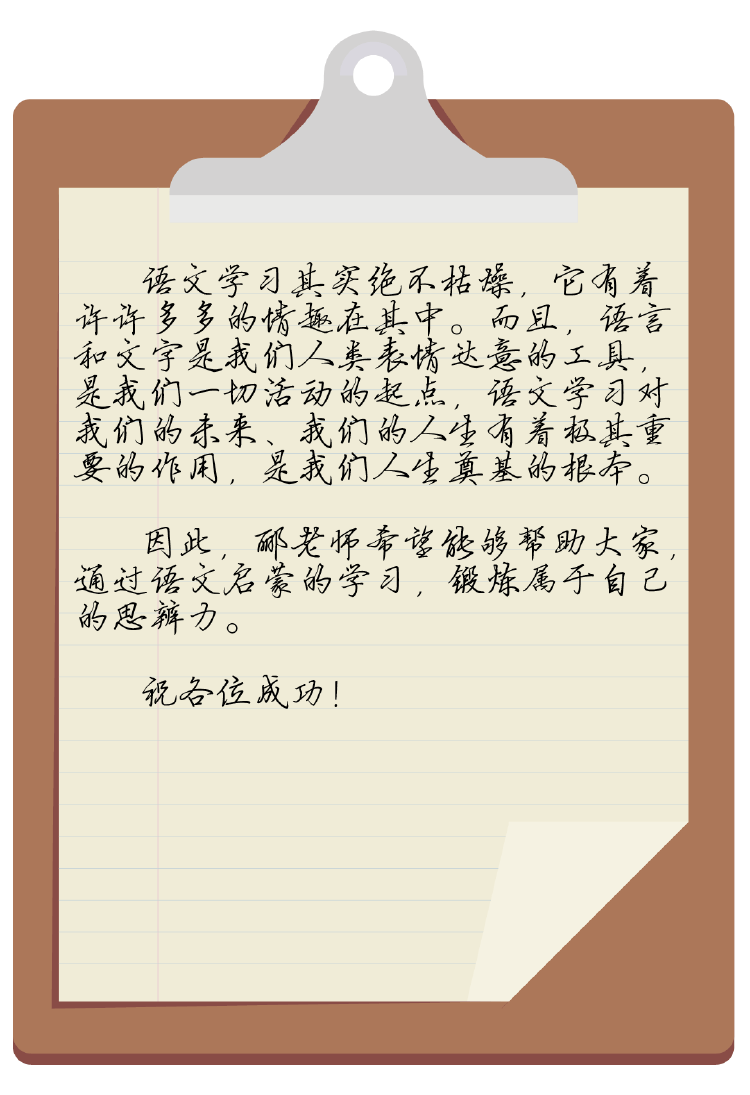 语文学习其实绝不枯燥，它有着
许许多多的情趣在其中。而且，语言
和文字是我们人类表情达意的工具，
是我们一切活动的起点，语文学习对
我们的未来、我们的人生有着极其重
要的作用，是我们人生奠基的根本。
因此，郦老师希望能够帮助大家，
通过语文启蒙的学习，锻炼属于自己
的思辨力。
祝各位成功！